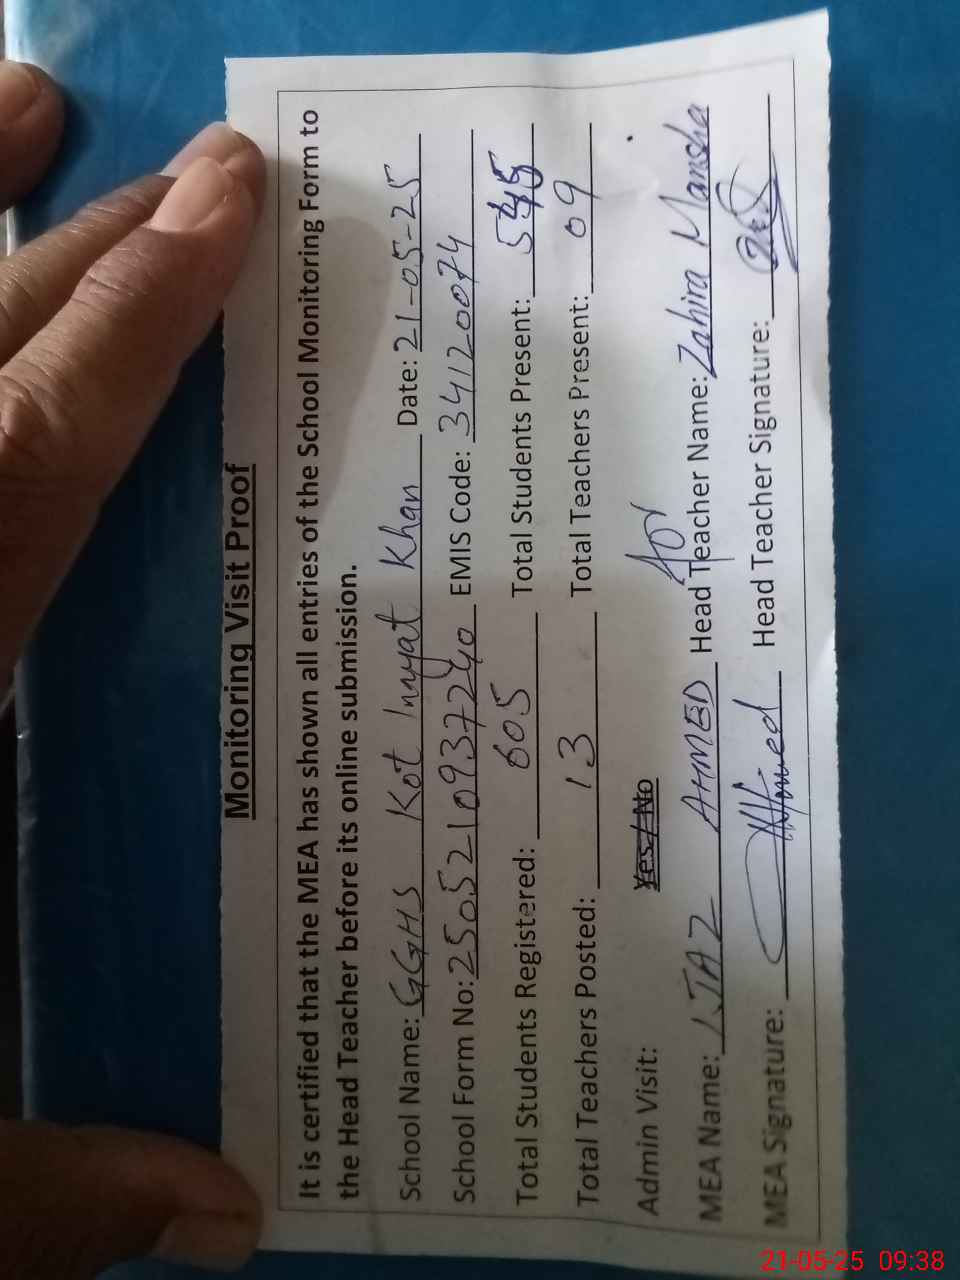 Monitoring Visit Proof
It is certified that the MEA has shown all entries of the School Monitoring Form to
the Head Teacher before its online submission.
School Name: GGHS Kot Inayat Khan Date: 21-05-25
School Form No: 25052109937240 EMIS Code: 34120074
Total Students Registered: 605 Total Students Present: 545
Total Teachers Posted: 13 Total Teachers Present: 09
Admin Visit: Yes/No for
MEA Name: IJAZ AHMED Head Teacher Name: Zahira Mansha
MEA Signature: Ahmed Head Teacher Signature:
21-05-25 09:38